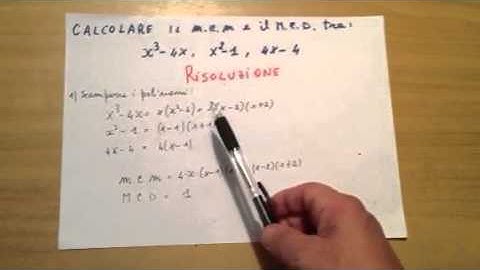 CALCOLARE IL m.c.m e il M.C.D. tra:
x³-4x, x²-1, 4x-4
RISOLUZIONE
1) Scomporre i polinomi:
x³-4x = x(x²-4) = x(x-2)(x+2)
x²-1 = (x-1)(x+1
4x-4 = 4(x-1)
m c m = 4·x·(x-1) (x-2)(x+2)
M C D = 1